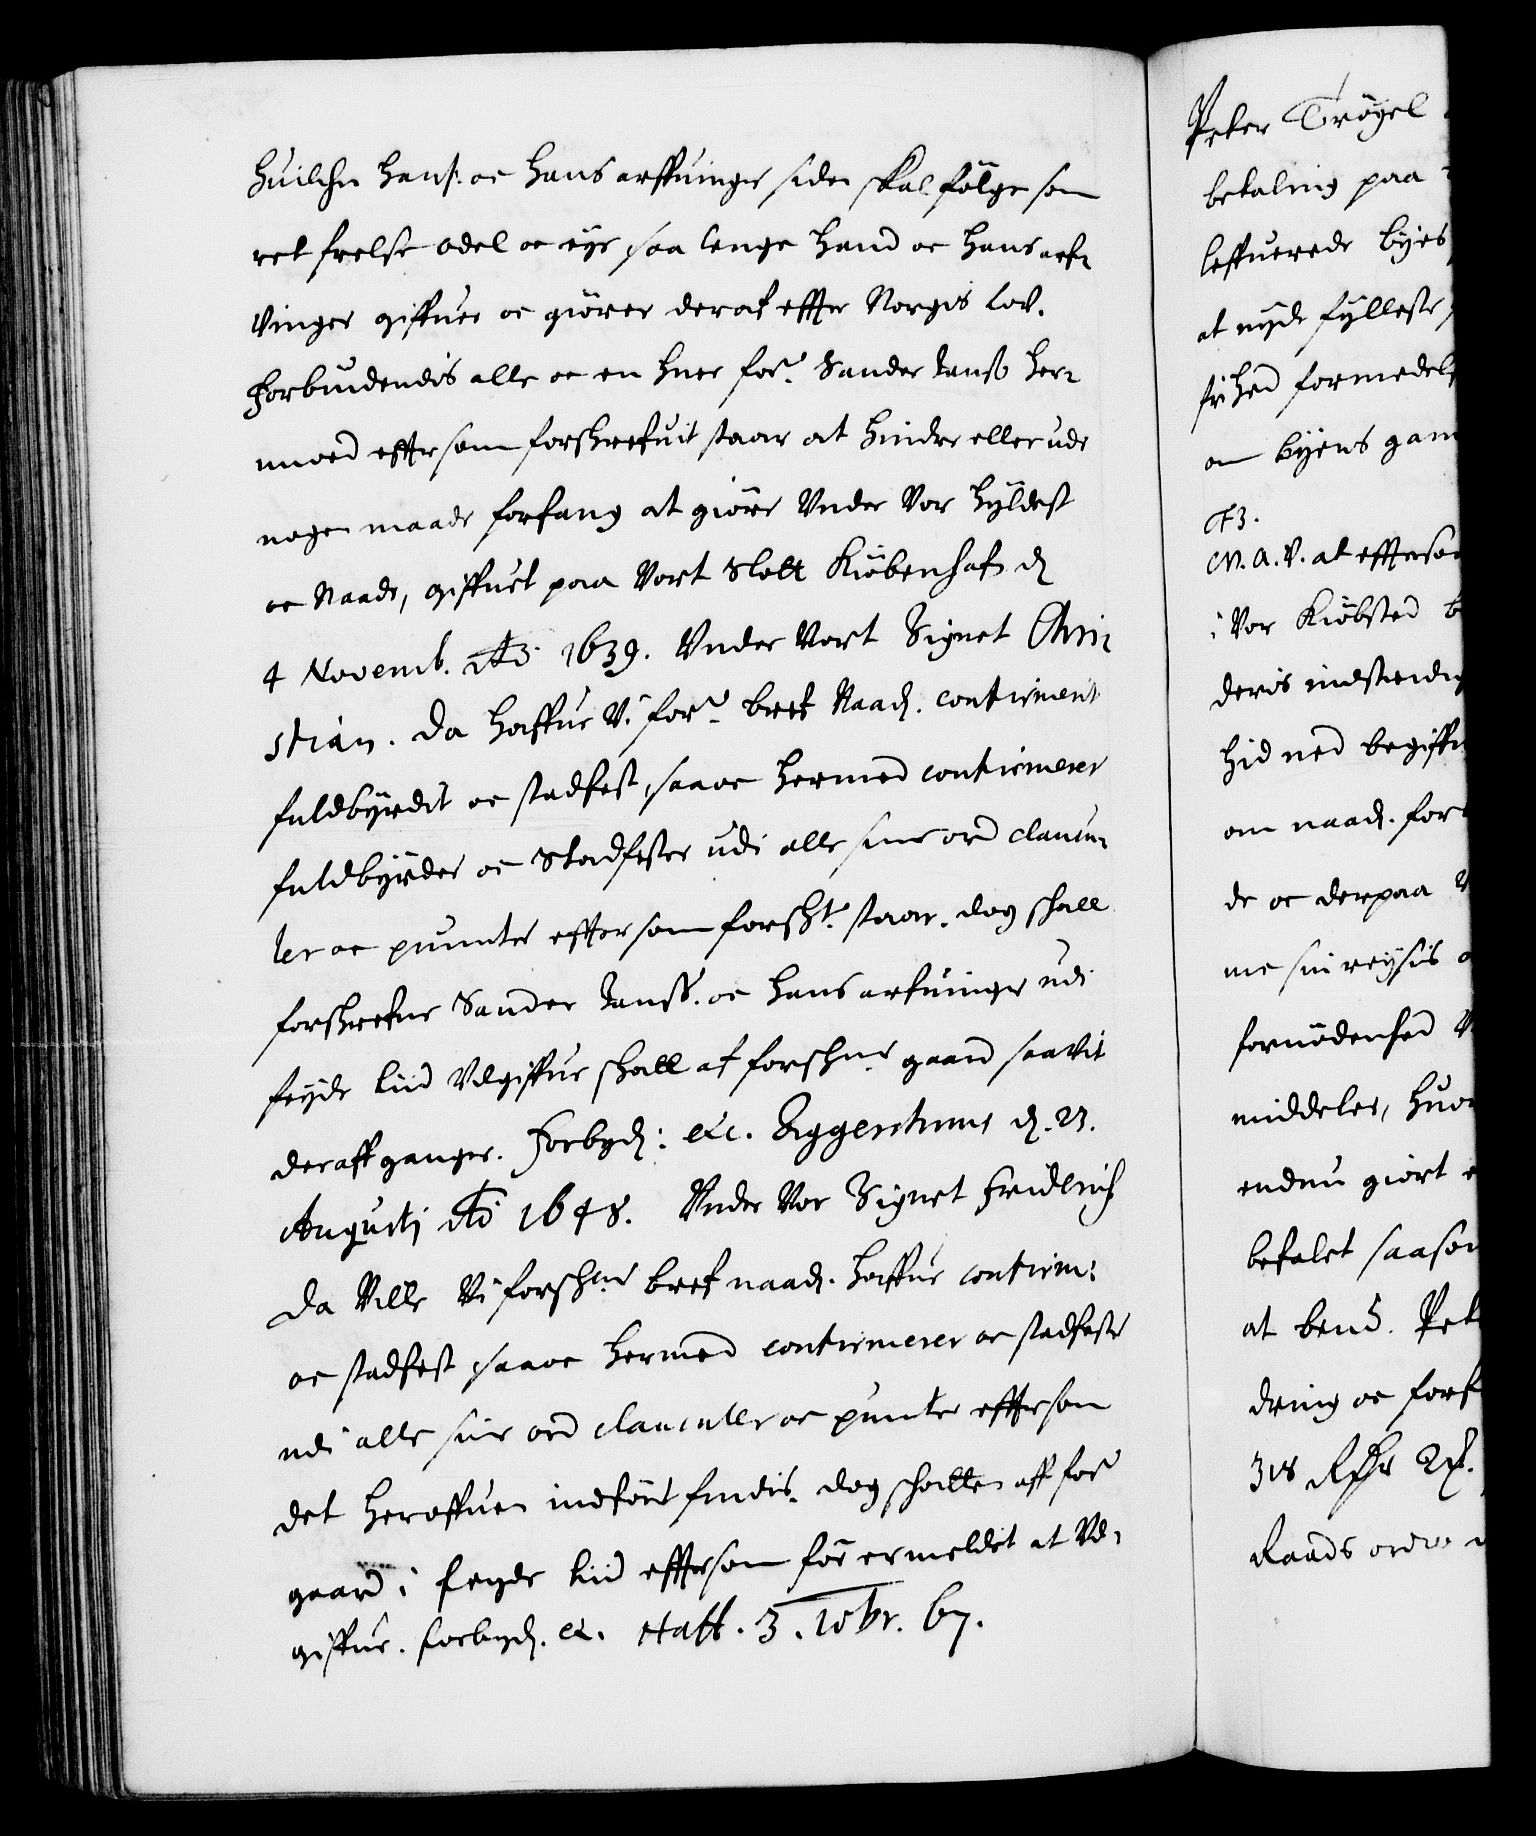 huilchen hans: oc hans arffuinger siden skal følge som
ret frelse odel oc eye saa lenge hand oc hans arf-
vinger giffuer oc giører deraf effter Norgis lov.
Forbudendis alle oc en huer for.ne Sander Janß her-
imod effter som forskrefuit staar at hindre eller udi
nogen maade forfang at giøre Under Vor hyldest
oc Naade, giffuet paa Vort Slott Kiøbenhafn d.
4 Novemb. Ao 1639. Under Vort Signet Chri-
stian. Da haffue Vi for.ne bref Naad. confirmerit
fuldbyrdit oc stadfest, saa oc hermed confirmerer
fuldbyrder oc Stadfester udi alle sine ord clausu-
ler oc puncter effter som forsk.t staar. dog schall
forskrefne Sander Janß. oc hans arfuinger udi
feyde tiid Udgiffue schall af forschne gaard saavit
deraff ganger. Forbyd: etc. Eggershuus d. 23.
Augustj Ao 1648. Under Vor Signet Fridrich
Da Ville Vi forschne bref naad. haffue confirm:
oc stadfest saa oc hermed confirmerer oc stadfester
udi alle sine ord clauculer oc puncter effter som
det heroffuen indført findis. dog schatten aff for.ne
gaard i feyde tiid effter som før er meldet at Ud-
giffue. Forbyd. etc. Haff. 3. 10br. 67.
Peter Trøgel
betaling paa
leffuerede byes
at nyde fylleste
frihed formedelst
om byens gam
F3.
C V. A. V. at effterso
i Vor Kiøbsted b
deris indstendig
hid ned begiffu
om naad. for
de oc derpaa
me sin reysis
fornødenhed
middeler, huor
endnu giort
befalet saasom
at bend. Pet
dring oc forf
318 Rdr
Raads ordre